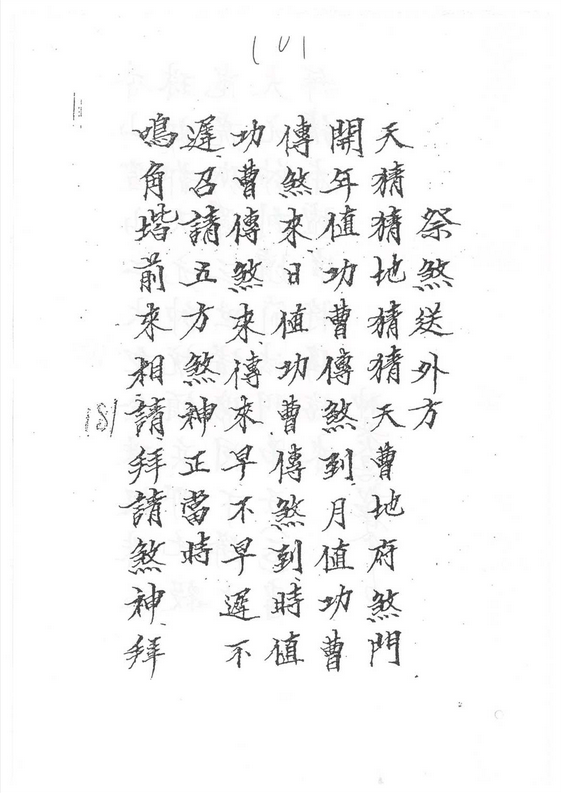 祭煞送外方
天猜猜地猜猜天曹地府煞門
開年值功曹傳煞到月值功曹
傳煞來日值功曹傳煞到時值
功曹傳煞來傳來早不早遲不
遲召請五方煞神正當時
鳴角堦前來相請拜請煞神拜